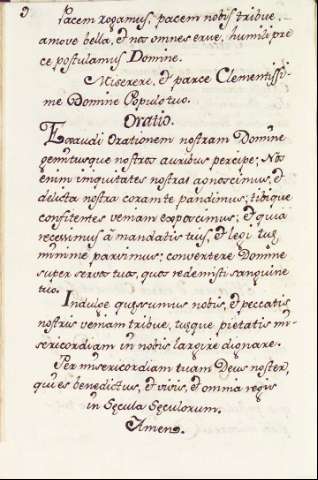 9
Pacem rogamus, pacem nobis tribue,
amove bella, et nos omnes erue, humili pre
ce postulamus Domine.
Miserere, et parce Clementissi-
me Domine Populo tuo.
Oratio.
Exaudi Orationem nostram Domine
gemitusque nostros auribus percipe; Nos
enim iniquitates nostras agnoscimus, et
delicta nostra coram te pandimus; tibique
confitentes veniam exposcimus; et quia
recessimus â mandatis tuis, et legi tuę
minime paruimus; convertere Domine
super servos tuos, quos redemisti sanguine
tuo.
Indulge quęsumus nobis, et peccatis
nostris veniam tribue, tuęque pietatis mi-
sericordiam in nobis largire dignare.
Per misericordiam tuam Deus noster,
qui es benedictus, et vivis, et omnia regis
in Sęcula Sęculorum.
Amen.